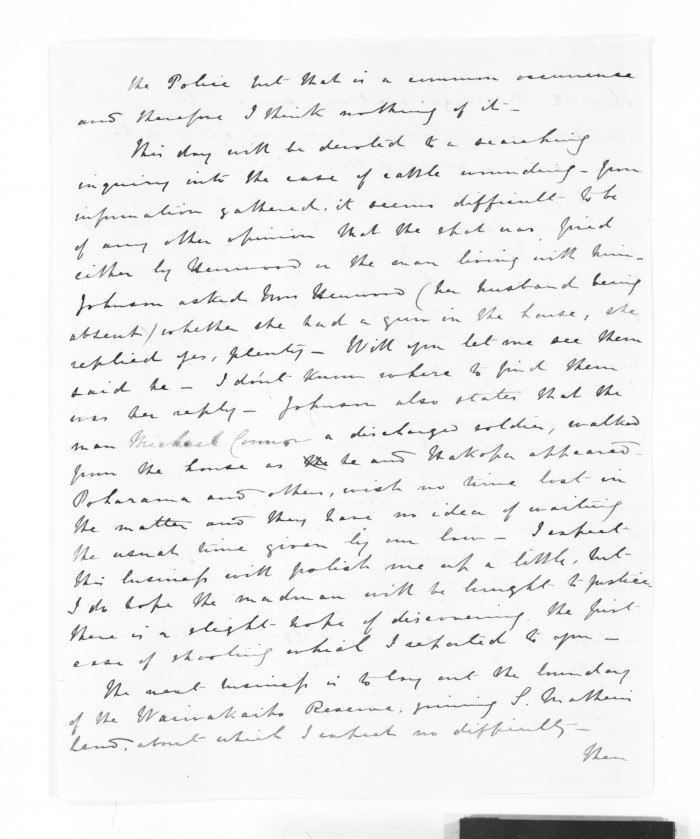 the Police but that is a common occurrence
and therefore I think nothing of it -
This day will be devoted to a searching
inquiry into the case of cattle wounding - from
information gathered, it seems difficult to be
of any other opinion that the shot was fired
either by Henwood or the man living with him -
Johnson asked Mrs Henwood (her husband being
absent) whether she had a gun in the house, she
replied yes, plenty - Will you let me see them
said he - I don't know where to find them
was her reply - Johnson also states that the
man Michael Connor a discharged soldier, walked
from the house as he and Hakopa appeared -
Poharama and others, wish no time lost in
the matter and they have no idea of waiting
the usual time given by our law - I expect
this business will polish me up a little, but
I do hope the madman will be brought to justice
there is a slight hope of discovering the first
case of shooting which I reported to you -
The next business is to lay out the boundary
of the Waiwakaiho Reserve, joining S.
land, about which I expect no difficulty -
Then